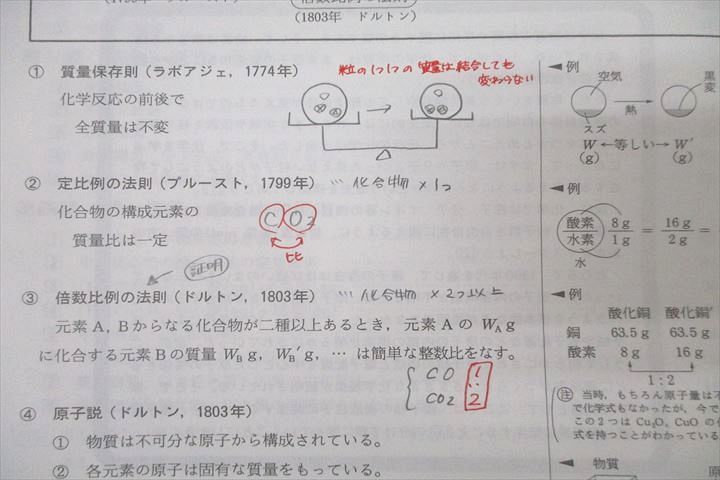 (1803年 ドルトン)
① 質量保存則 (ラボアジェ, 1774年)
粒の1つ1つの質量は結合しても
変わらない
化学反応の前後で
全質量は不変
例
空気
黒変
熱
スズ
W ←等しい→ W′
(g) (g)
② 定比例の法則 (プルースト, 1799年) … 化合物×1つ
化合物の構成元素の
質量比は一定
CO2
比
例
酸素 8g = 16g =
水素 1g 2g
水
証明
③ 倍数比例の法則 (ドルトン, 1803年) … 化合物×2つ以上
元素A, Bからなる化合物が二種以上あるとき, 元素AのWA g
に化合する元素Bの質量 WB g, WB′ g, … は簡単な整数比をなす。
CO 1
:
CO2 2
例
酸化銅 酸化銅′
銅 63.5g 63.5g
酸素 8g 16g
1:2
④ 原子説 (ドルトン, 1803年)
① 物質は不可分な原子から構成されている。
② 各元素の原子は固有な質量をもっている。
注 当時, もちろん原子量は不
で化学式もなかったが, 今で
この2つは Cu2O, CuO の化
式を持つことがわかっている
物質